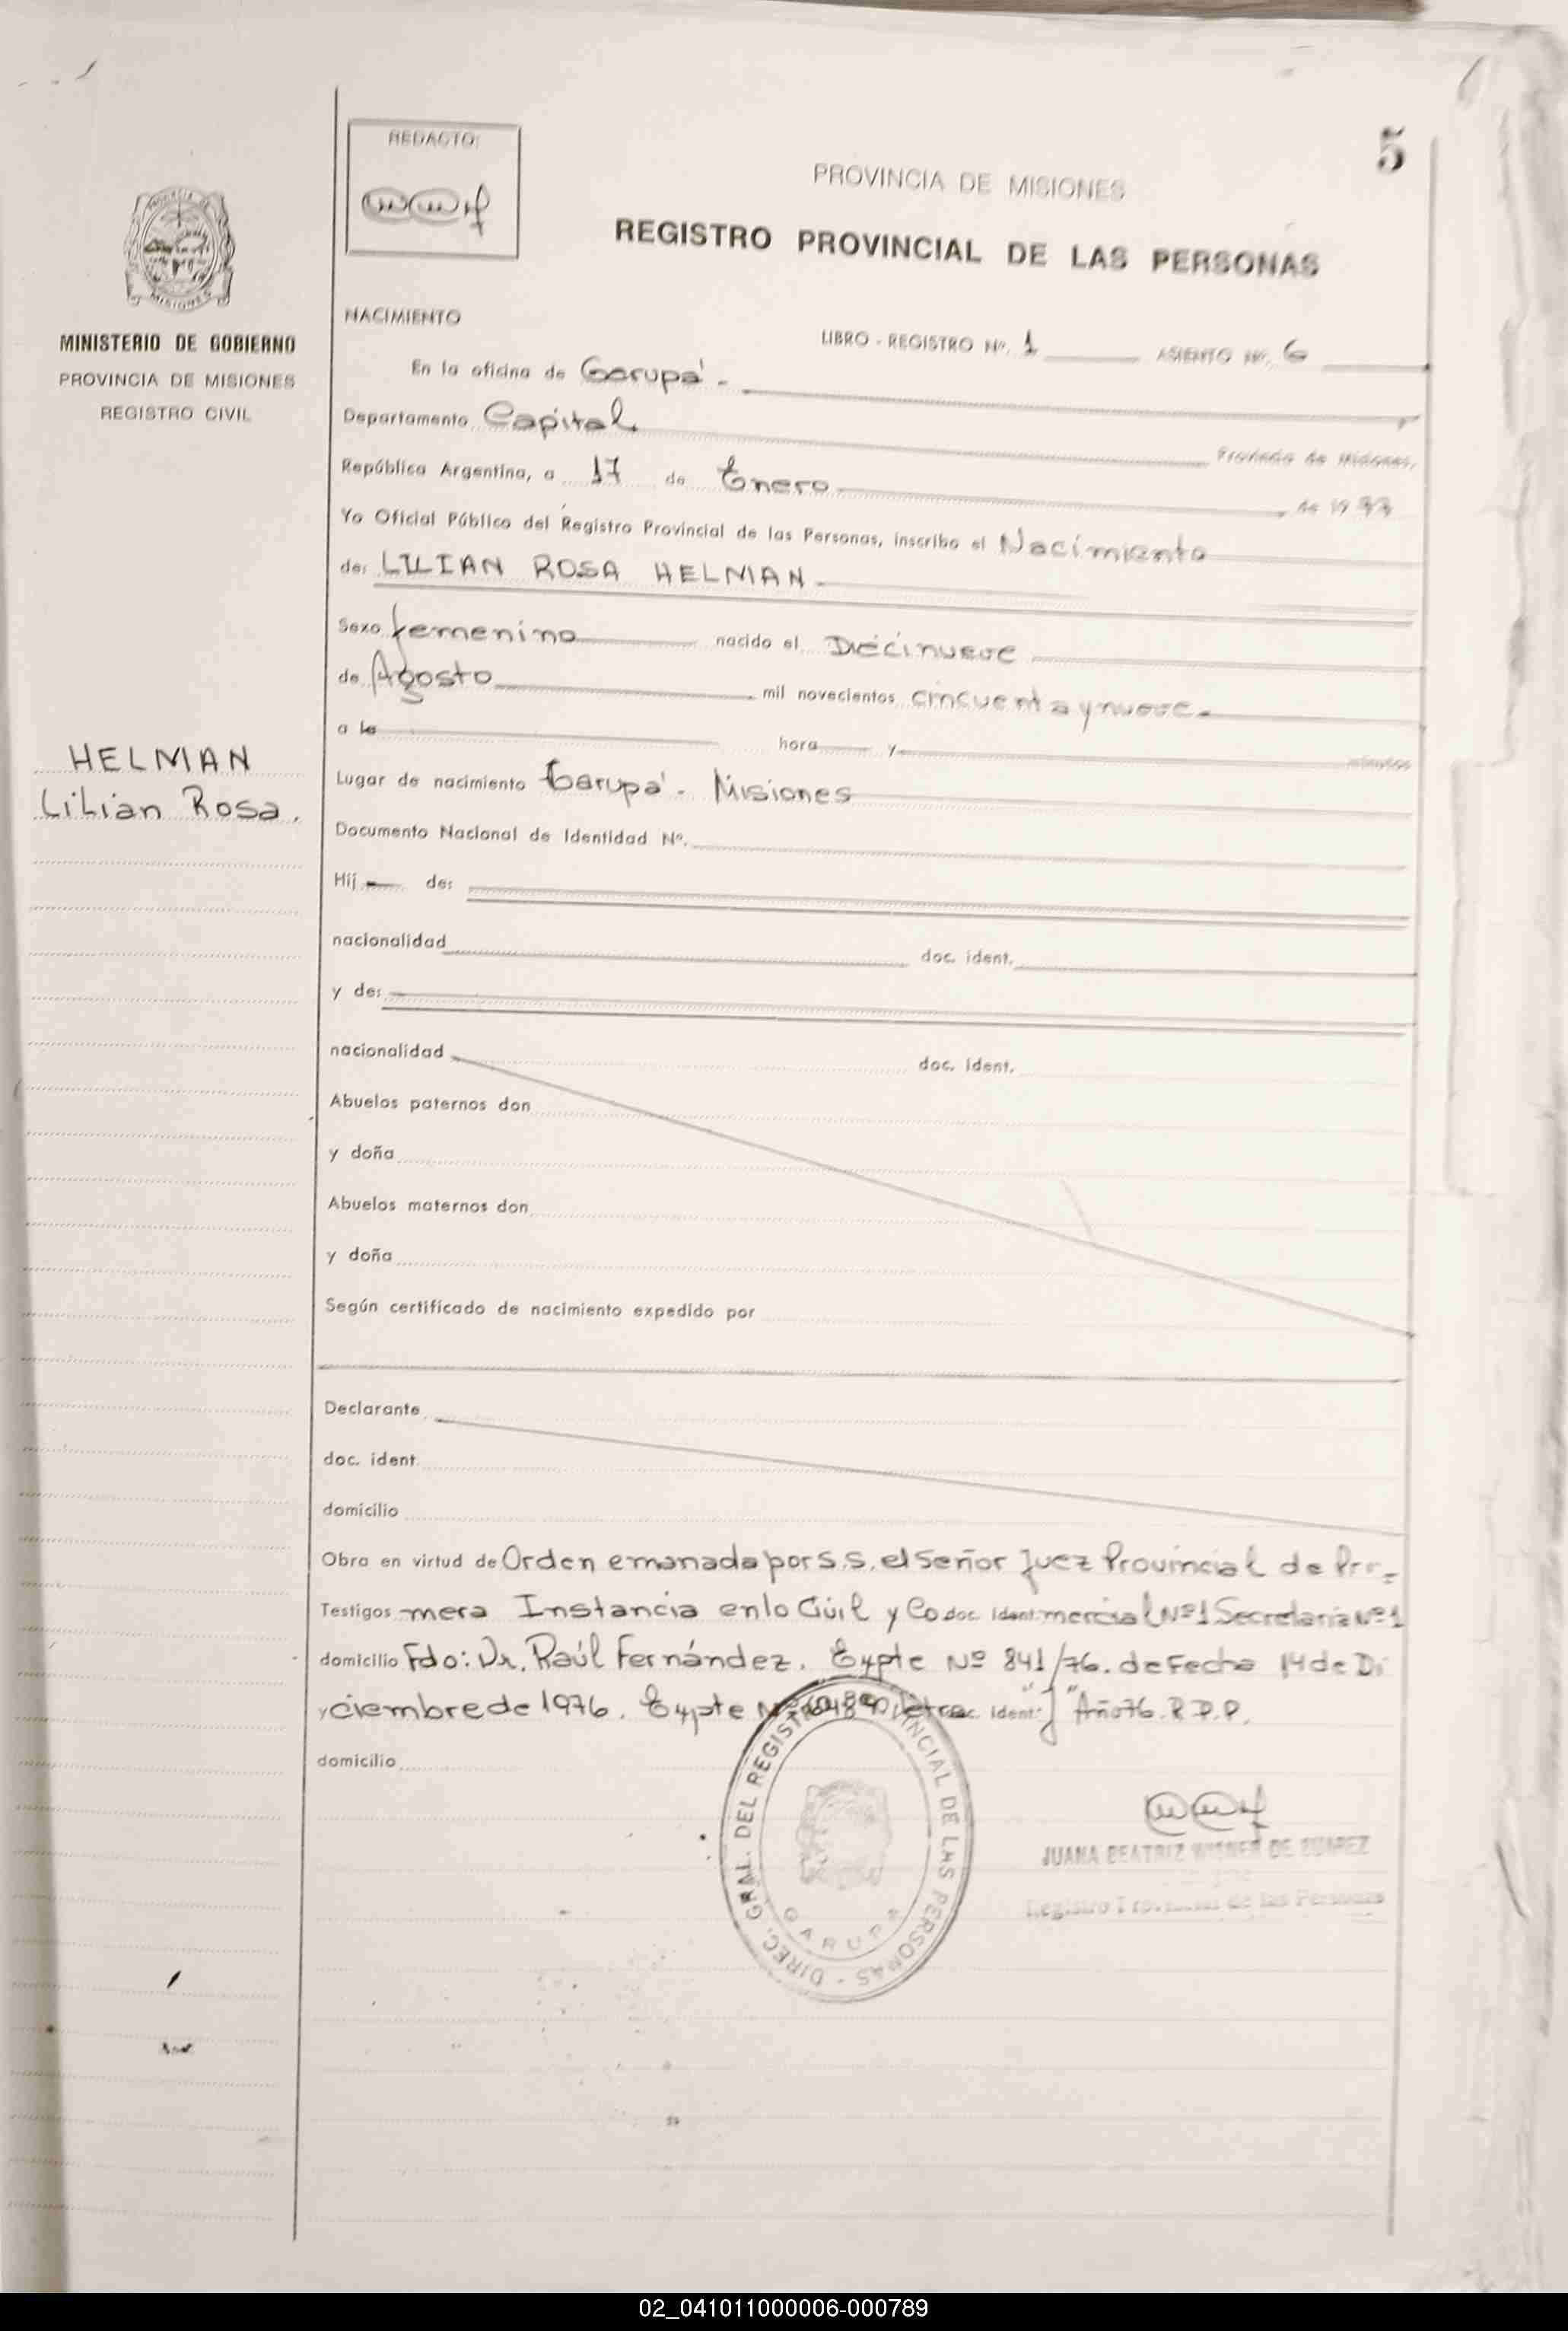 5
REDACTO:
PROVINCIA DE MISIONES
REGISTRO PROVINCIAL DE LAS PERSONAS
PROVINCIA DE
MISIONES
MINISTERIO DE GOBIERNO
PROVINCIA DE MISIONES
REGISTRO CIVIL
HELMAN
Lilian Rosa.
NACIMIENTO
LIBRO - REGISTRO Nº. 1 ASIENTO Nº. 6
En la oficina de Garupá -
Departamento Capital Provincia de Misiones,
República Argentina, a 17 de Enero, de 19
Yo Oficial Público del Registro Provincial de las Personas, inscribo el Nacimiento
de: LILIAN ROSA HELMAN
Sexo femenino nacido el Diécinueve
de Agosto mil novecientos cincuenta y nueve.
a la hora y minutos
Lugar de nacimiento Garupá - Misiones
Documento Nacional de Identidad Nº.
Hij de:
nacionalidad doc. ident.
y de:
nacionalidad doc. ident.
Abuelos paternos don
y doña
Abuelos maternos don
y doña
Según certificado de nacimiento expedido por
Declarante
doc. ident.
domicilio
Obra en virtud de Orden emanada por S.S. el Señor Juez Provincial de Pri-
Testigos mera Instancia en lo Civil y Co doc. ident. mercial Nº1 Secretaría Nº1
domicilio Fdo: Dr. Raúl Fernández. Expte Nº 841/76. de Fecha 14 de Di
y ciembre de 1976. Expte Nº letra c. ident. "J" Año 76. R.P.P.
domicilio
DIREC. GRAL. DEL REGISTRO PROVINCIAL DE LAS PERSONAS -
GARUPA
JUANA BEATRIZ WISNER DE SUAREZ
Registro Provincial de las Personas
02_041011000006-000789